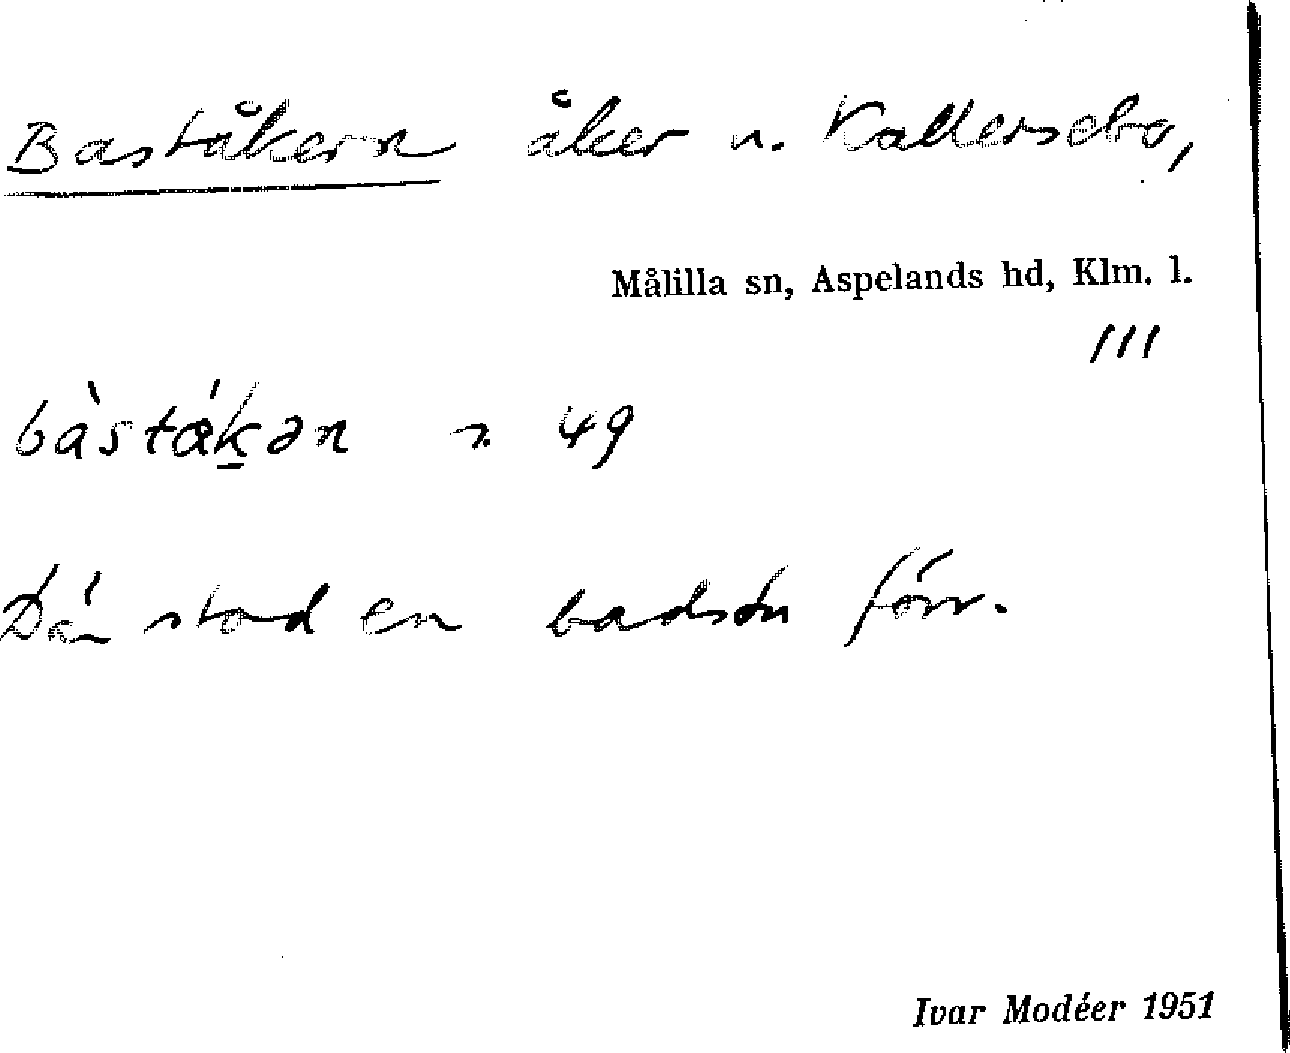 Baståkern åker n. Kallersebo,
Målilla sn, Aspelands hd, Klm. l.
III
bàståk̠ən n. 49
Där stod en badstu förr.
Ivar Modéer 1951